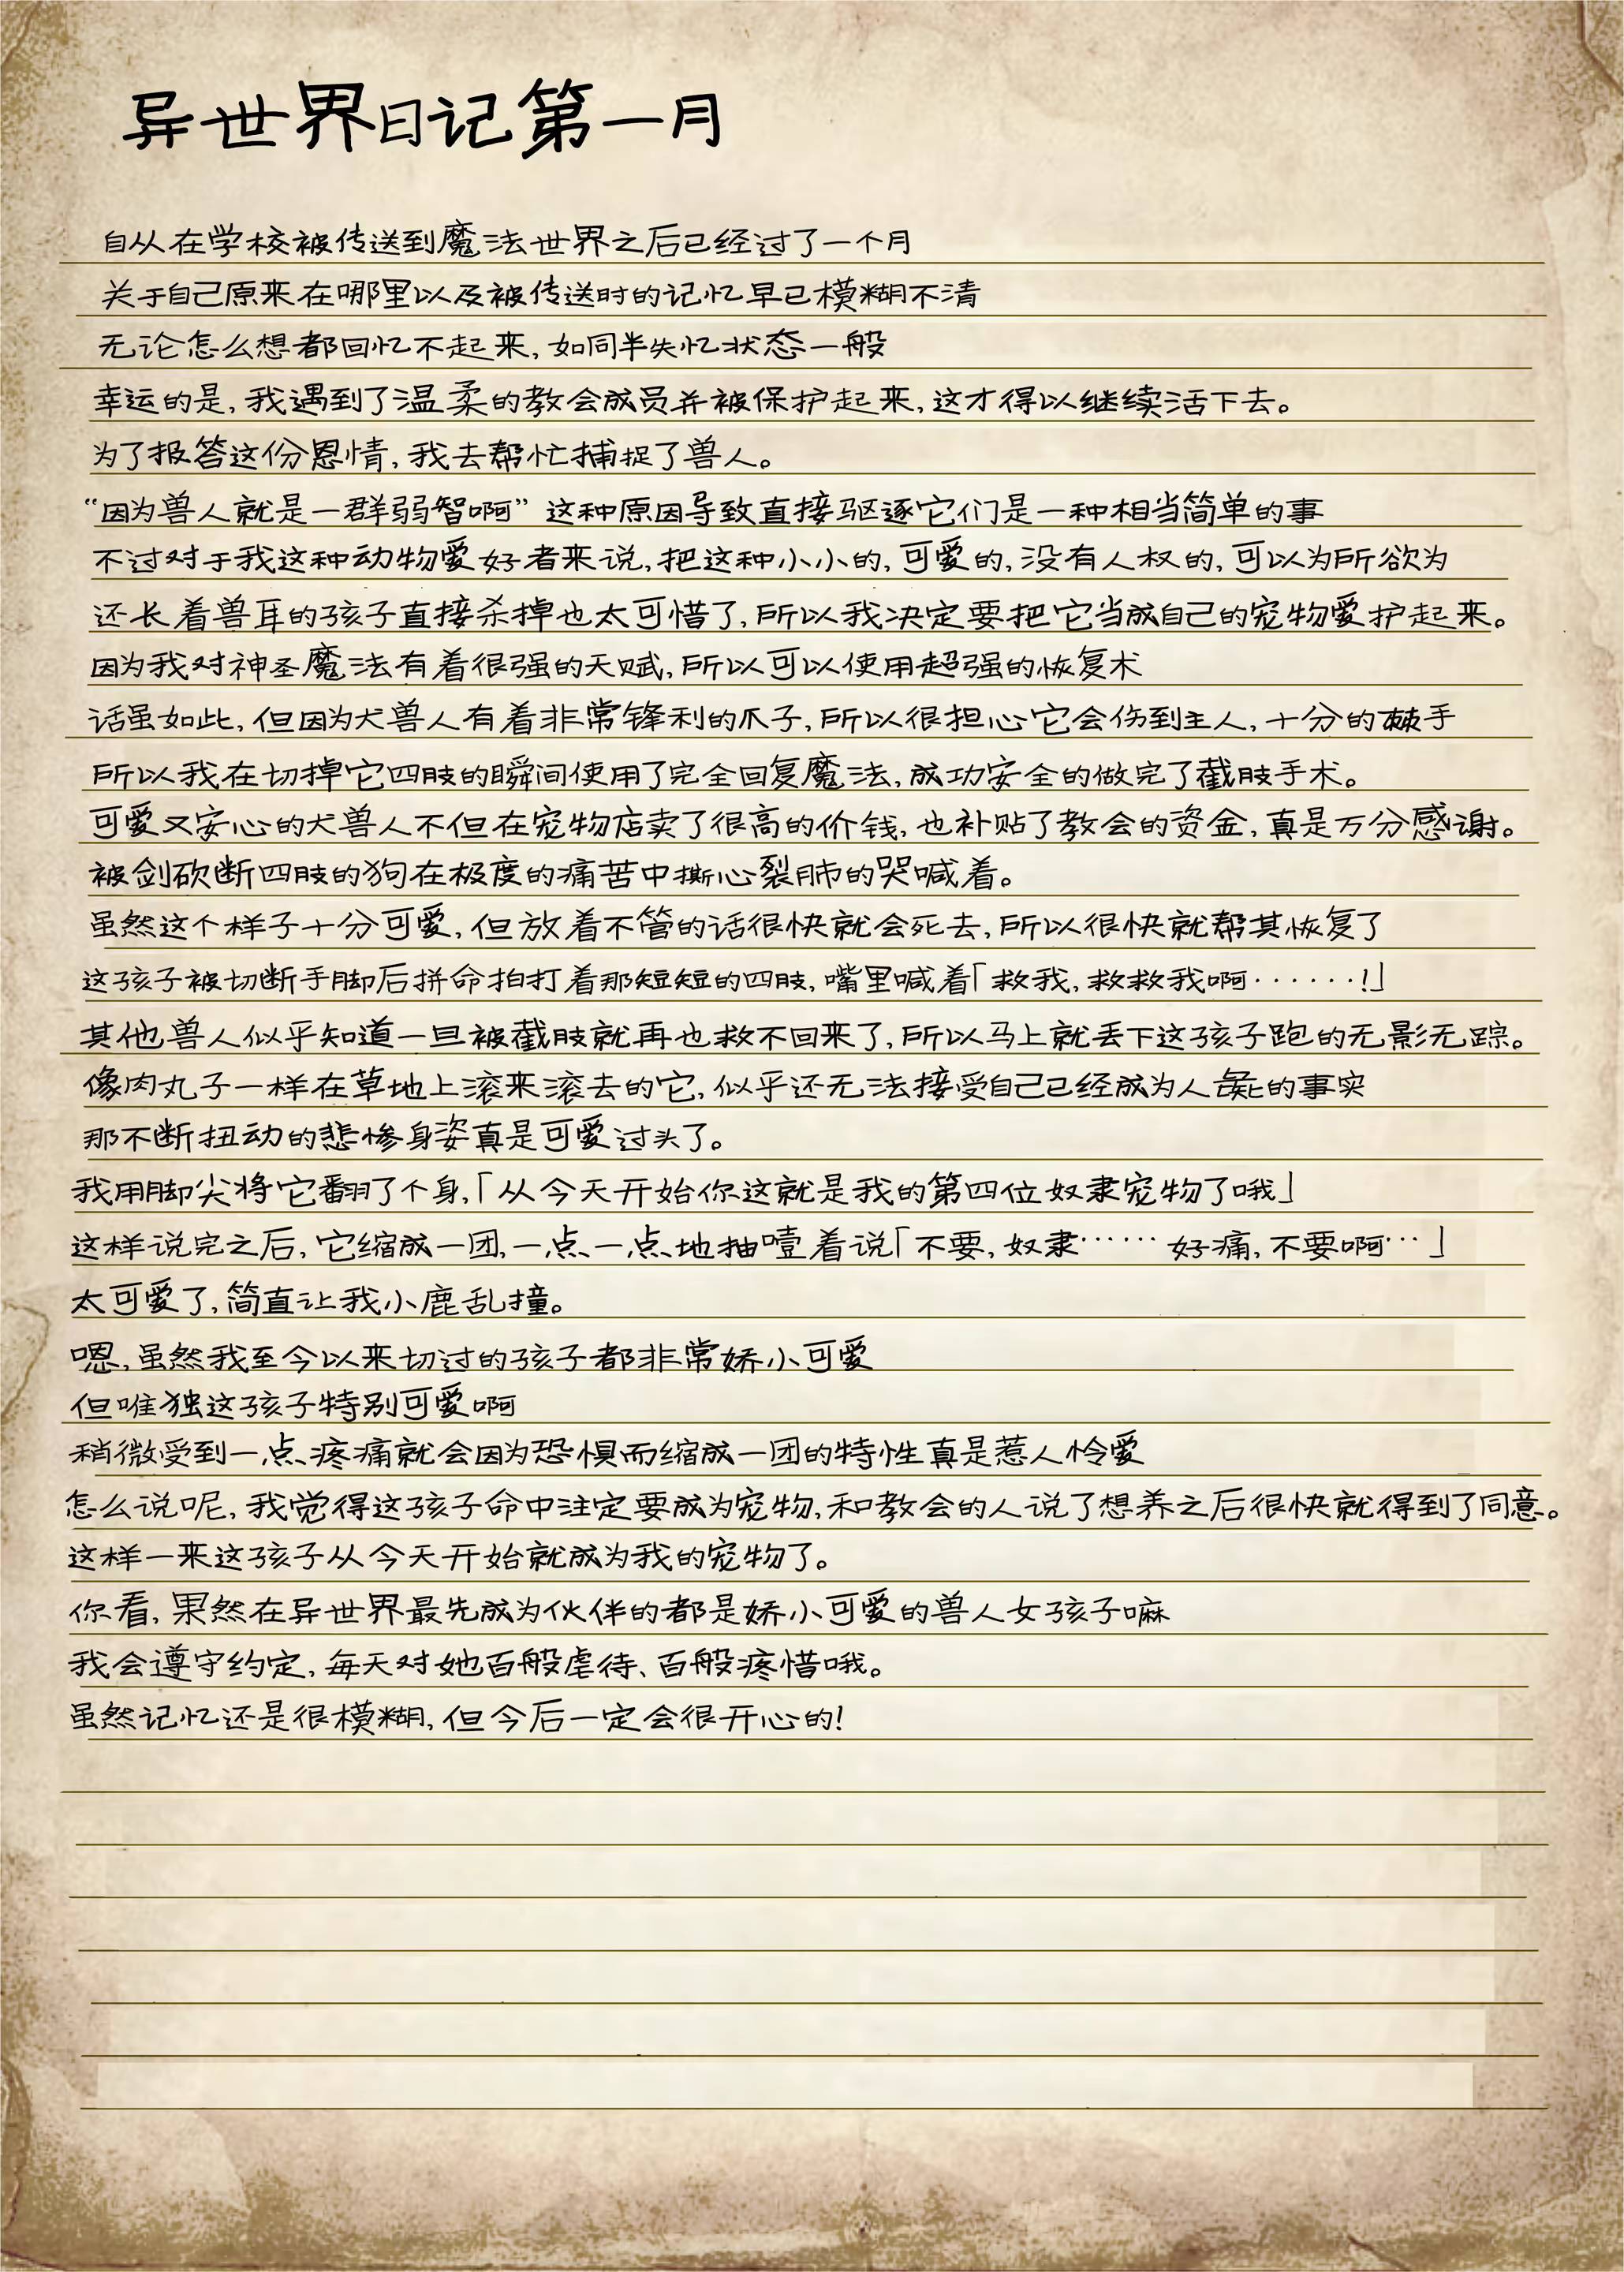 异世界日记第一月
自从在学校被传送到魔法世界之后已经过了一个月
关于自己原来在哪里以及被传送时的记忆早已模糊不清
无论怎么想都回忆不起来,如同半失忆状态一般
幸运的是,我遇到了温柔的教会成员并被保护起来,这才得以继续活下去。
为了报答这份恩情,我去帮忙捕捉了兽人。
“因为兽人就是一群弱智啊”这种原因导致直接驱逐它们是一种相当简单的事
不过对于我这种动物爱好者来说,把这种小小的,可爱的,没有人权的,可以为所欲为
还长着兽耳的孩子直接杀掉也太可惜了,所以我决定要把它当成自己的宠物爱护起来。
因为我对神圣魔法有着很强的天赋,所以可以使用超强的恢复术
话虽如此,但因为犬兽人有着非常锋利的爪子,所以很担心它会伤到主人,十分的棘手
所以我在切掉它四肢的瞬间使用了完全回复魔法,成功安全的做完了截肢手术。
可爱又安心的犬兽人不但在宠物店卖了很高的价钱,也补贴了教会的资金,真是万分感谢。
被剑砍断四肢的狗在极度的痛苦中撕心裂肺的哭喊着。
虽然这个样子十分可爱,但放着不管的话很快就会死去,所以很快就帮其恢复了
这孩子被切断手脚后拼命拍打着那短短的四肢,嘴里喊着「救我,救救我啊······!」
其他兽人似乎知道一旦被截肢就再也救不回来了,所以马上就丢下这孩子跑的无影无踪。
像肉丸子一样在草地上滚来滚去的它,似乎还无法接受自己已经成为人彘的事实
那不断扭动的悲惨身姿真是可爱过头了。
我用脚尖将它翻了个身,「从今天开始你这就是我的第四位奴隶宠物了哦」
这样说完之后,它缩成一团,一点一点地抽噎着说「不要,奴隶······好痛,不要啊···」
太可爱了,简直让我小鹿乱撞。
嗯,虽然我至今以来切过的孩子都非常娇小可爱
但唯独这孩子特别可爱啊
稍微受到一点疼痛就会因为恐惧而缩成一团的特性真是惹人怜爱
怎么说呢,我觉得这孩子命中注定要成为宠物,和教会的人说了想养之后很快就得到了同意。
这样一来这孩子从今天开始就成为我的宠物了。
你看,果然在异世界最先成为伙伴的都是娇小可爱的兽人女孩子嘛
我会遵守约定,每天对她百般虐待、百般疼惜哦。
虽然记忆还是很模糊,但今后一定会很开心的!